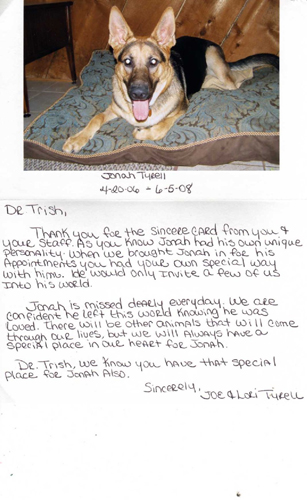 Jonah Tyrell
4-20-06 - 6-5-08
Dr. Trish,
Thank you for the sincere card from you &
your staff. As you know Jonah had his own unique
personality. When we brought Jonah in for his
Appointments you had your own special way
with him. He would only invite a few of us
into his world.
Jonah is missed dearly everyday. We are
confident he left this world knowing he was
loved. There will be other animals that will come
through our lives, but we will always have a
special place in our heart for Jonah.
Dr. Trish, we know you have that special
place for Jonah Also.
Sincerely,
Joe & Lori Tyrell